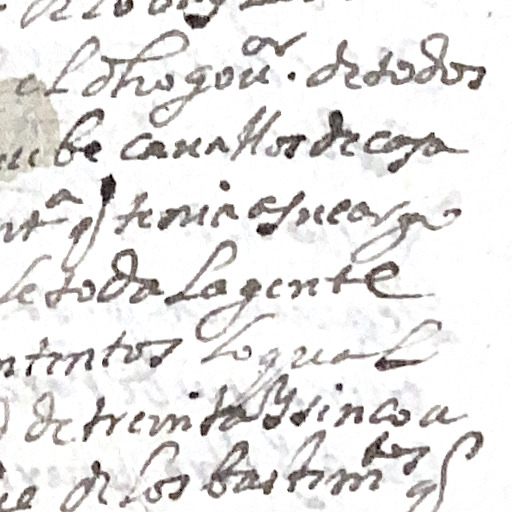 el dho gouor. de todos
nuebe cauallos de caza
nta q tenia a su cargo
de toda la gente
ntentos lo qual
de treinta y sinco a
de los bastimtos q